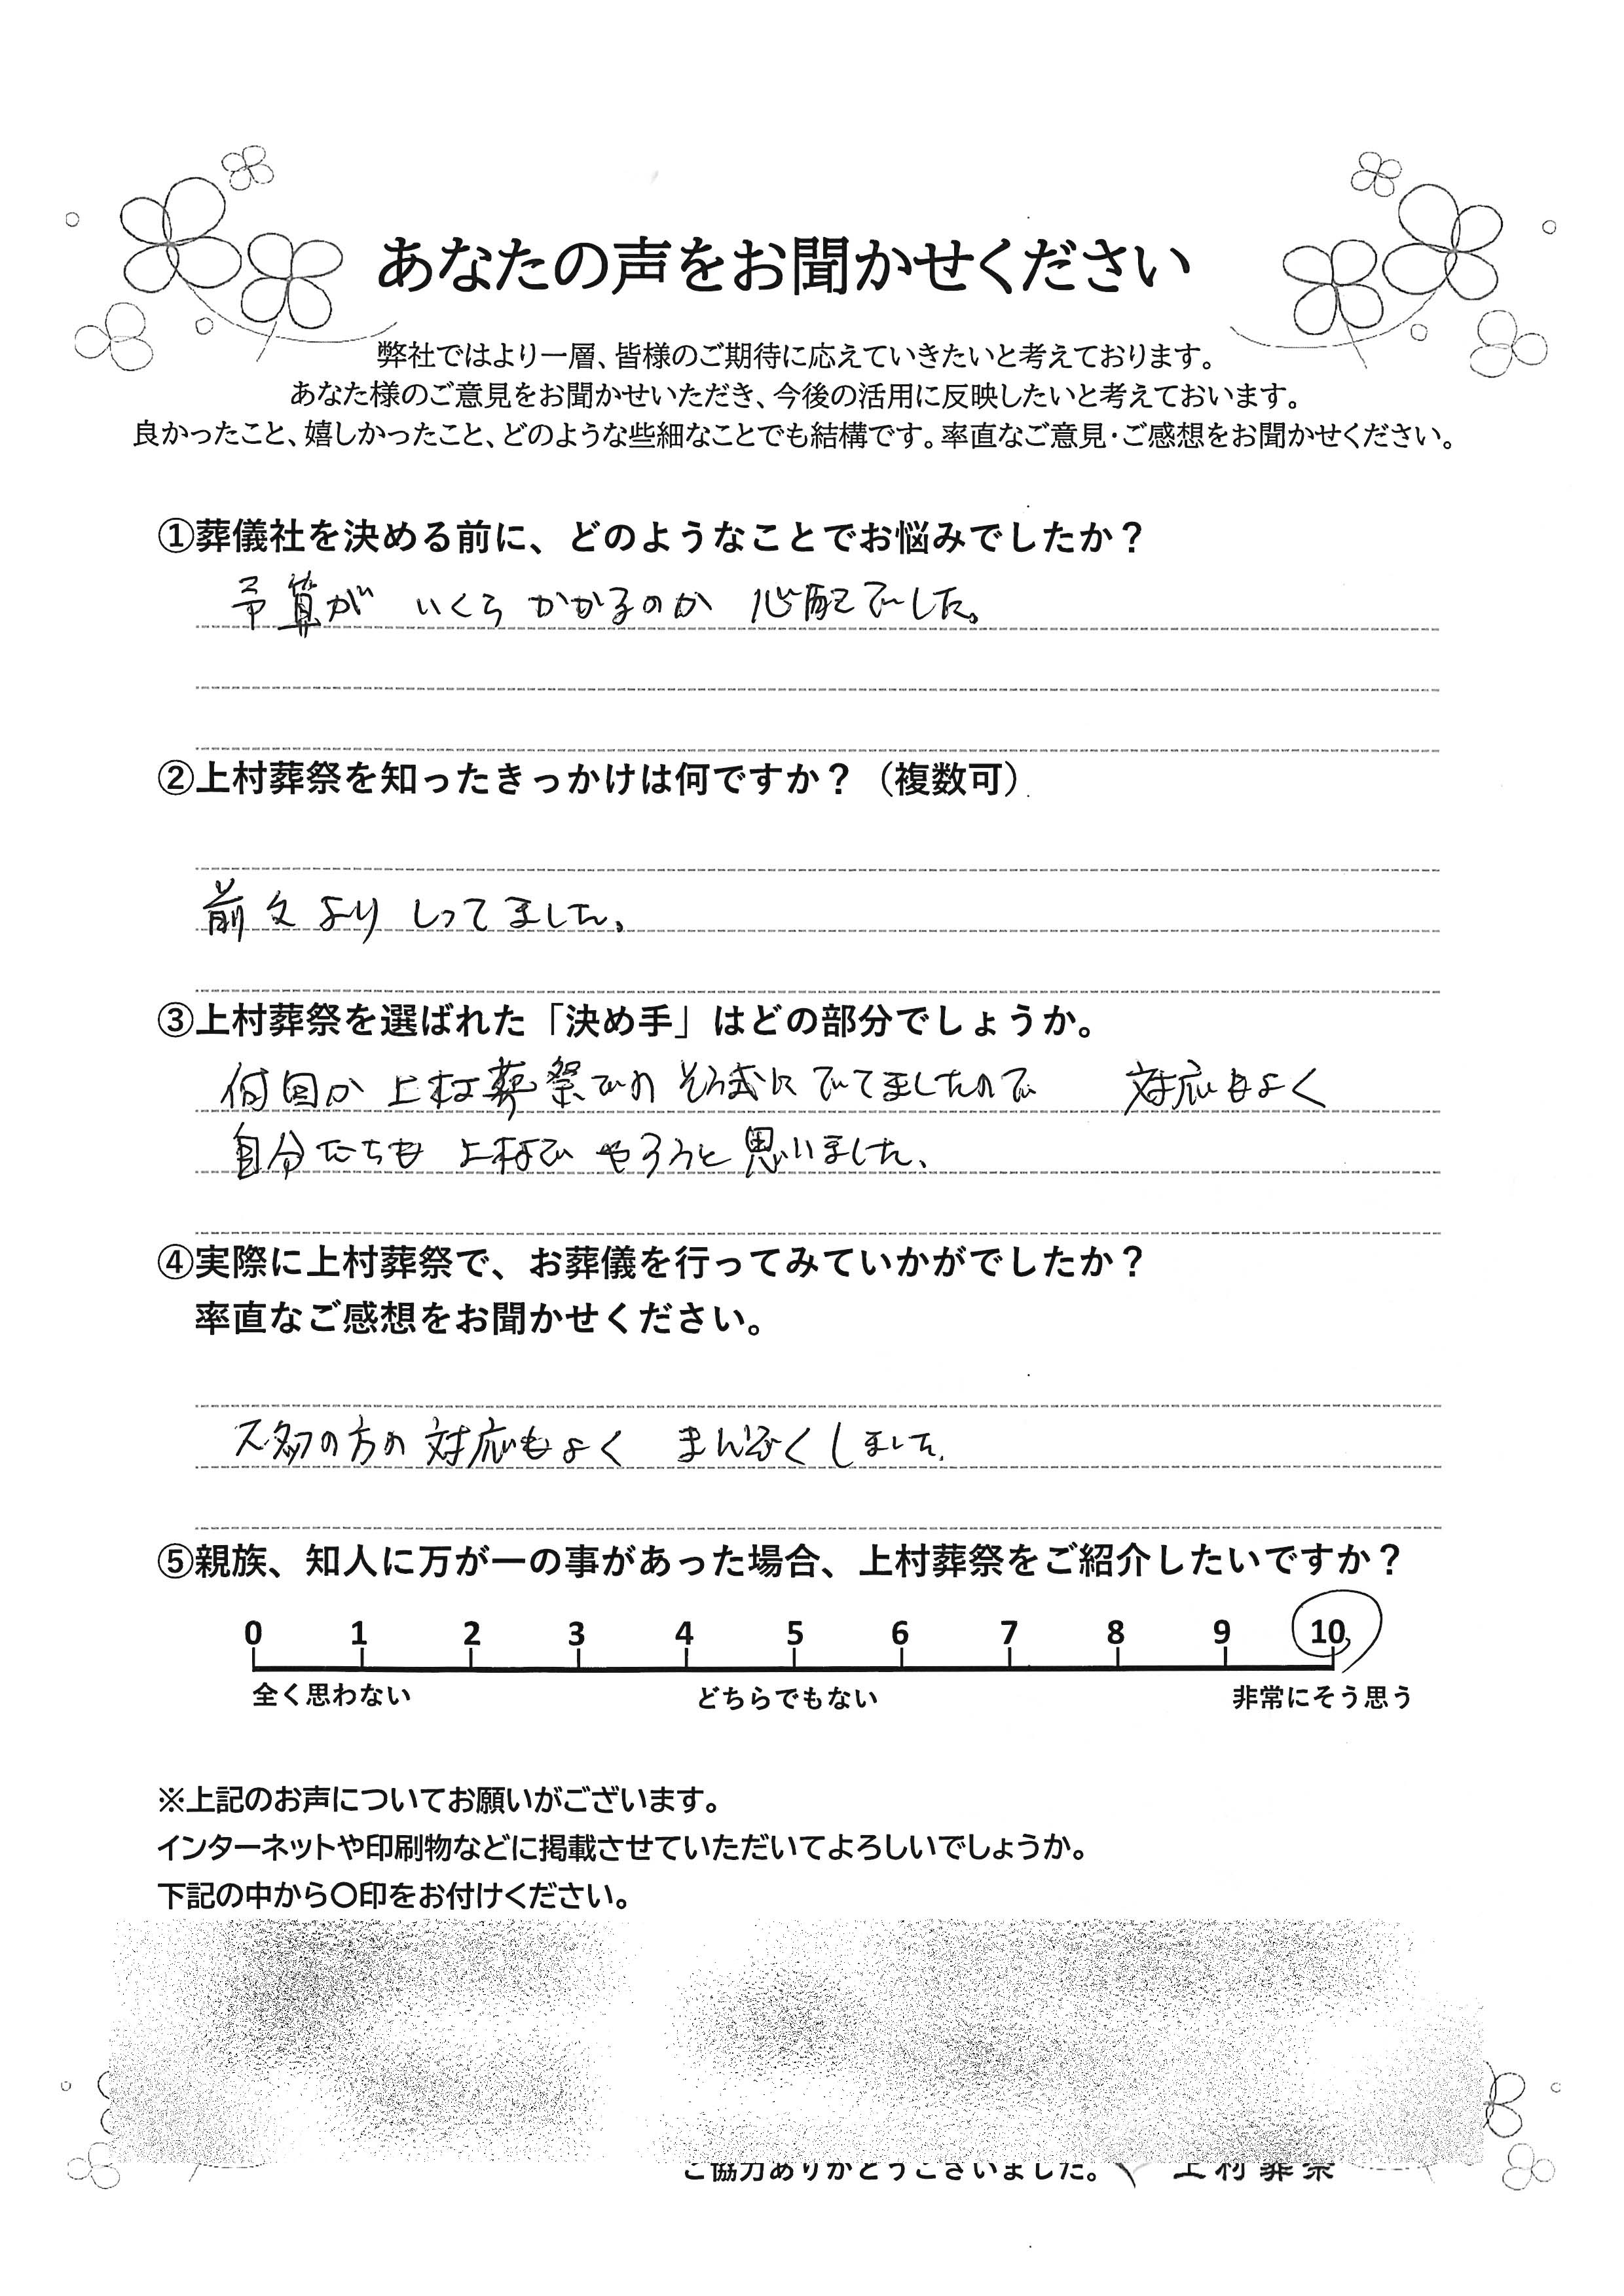 あなたの声をお聞かせください
弊社ではより一層、皆様のご期待に応えていきたいと考えております。
あなた様のご意見をお聞かせいただき、今後の活用に反映したいと考えておいます。
良かったこと、嬉しかったこと、どのような些細なことでも結構です。率直なご意見・ご感想をお聞かせください。
①葬儀社を決める前に、どのようなことでお悩みでしたか？
予算が いくら かかるのか 心配でした。
②上村葬祭を知ったきっかけは何ですか？（複数可）
前々より しってました。
③上村葬祭を選ばれた「決め手」はどの部分でしょうか。
何回か 上村葬祭での そう式に でてましたので 対応もよく
自分たちも 上村で やろうと 思いました、
④実際に上村葬祭で、お葬儀を行ってみていかがでしたか？
率直なご感想をお聞かせください。
スタッフの方の 対応もよく まんぞくしました.
⑤親族、知人に万が一の事があった場合、上村葬祭をご紹介したいですか？
0 1 2 3 4 5 6 7 8 9 10
全く思わない どちらでもない 非常にそう思う
※上記のお声についてお願いがございます。
インターネットや印刷物などに掲載させていただいてよろしいでしょうか。
下記の中から〇印をお付けください。
ご協力ありがとうございました。 上村葬祭